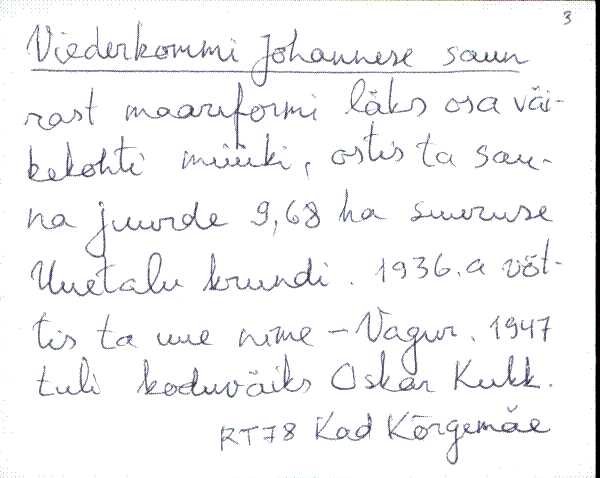 3
Viederkommi Johannese saun
rast maareformi läks osa väi-
kekohti müüki, ostis ta sau-
na juurde 9,68 ha suuruse
Uuetalu krundi. 1936.a võt-
tis ta uue nime - Vagur. 1947
tuli koduväiks Oskar Kukk.
RT78 Kad Kõrgemäe